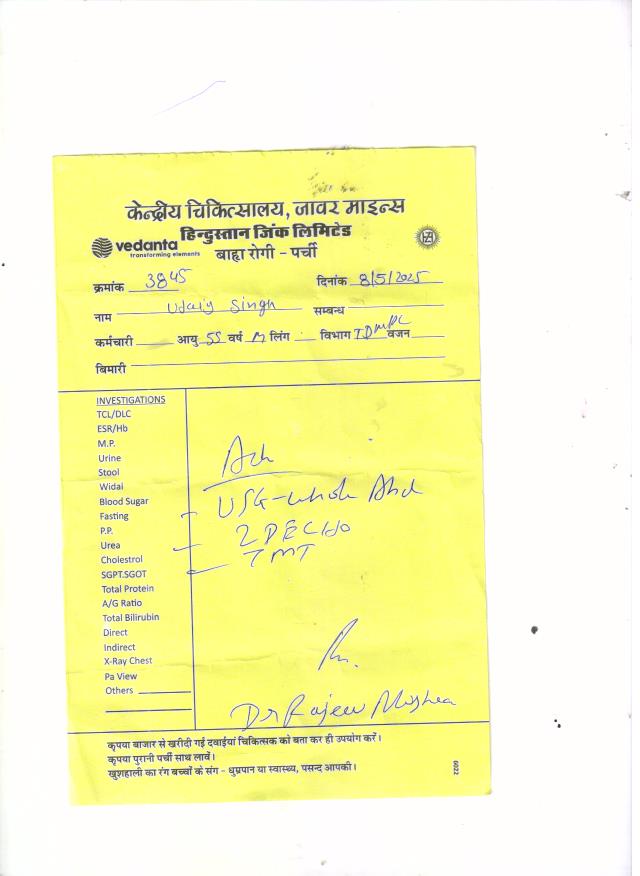 केन्द्रीय चिकित्सालय, जावर माइन्स
हिन्दुस्तान जिंक लिमिटेड
vedanta
transforming elements
बाह्य रोगी - पर्ची
क्रमांक 3845 दिनांक 8/5/2025
नाम Udaiy Singh सम्बन्ध
कर्मचारी आयु 55 वर्ष M लिंग विभाग वजन
बिमारी
INVESTIGATIONS
TCL/DLC
ESR/Hb
M.P.
Urine
Stool
Widal
Blood Sugar
Fasting
P.P.
Urea
Cholestrol
SGPT.SGOT
Total Protein
A/G Ratio
Total Bilirubin
Direct
Indirect
X-Ray Chest
Pa View
Others
Adv
USG-whole Abd
2DECHO
TMT
Dr Rajeev Mishra
कृपया बाजार से खरीदी गई दवाईयां चिकित्सक को बता कर ही उपयोग करें।
कृपया पुरानी पर्ची साथ लावें।
खुशहाली का रंग बच्चों के संग - धुम्रपान या स्वास्थ्य, पसन्द आपकी।
6022